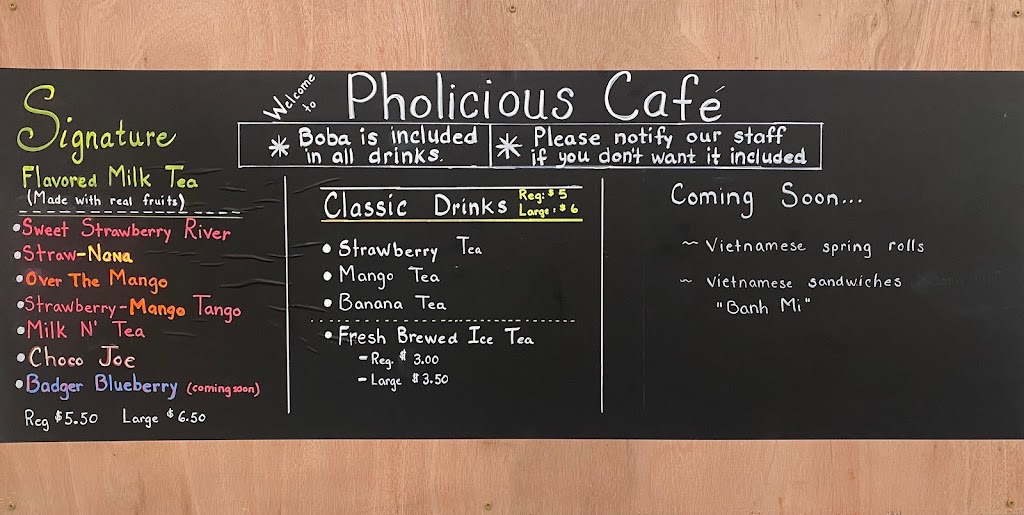 Welcome to
Pholicious Café
* Boba is included
in all drinks.
* Please notify our staff
if you don't want it included
Signature
Flavored Milk Tea
(Made with real fruits)
•Sweet Strawberry River
•Straw-Nana
•Over The Mango
•Strawberry-Mango Tango
•Milk N' Tea
•Choco Joe
•Badger Blueberry (coming soon)
Reg $5.50 Large $6.50
Classic Drinks
Reg: $5
Large: $6
• Strawberry Tea
• Mango Tea
• Banana Tea
• Fresh Brewed Ice Tea
- Reg. $3.00
- Large $3.50
Coming Soon...
~ Vietnamese spring rolls
~ Vietnamese sandwiches
"Banh Mi"